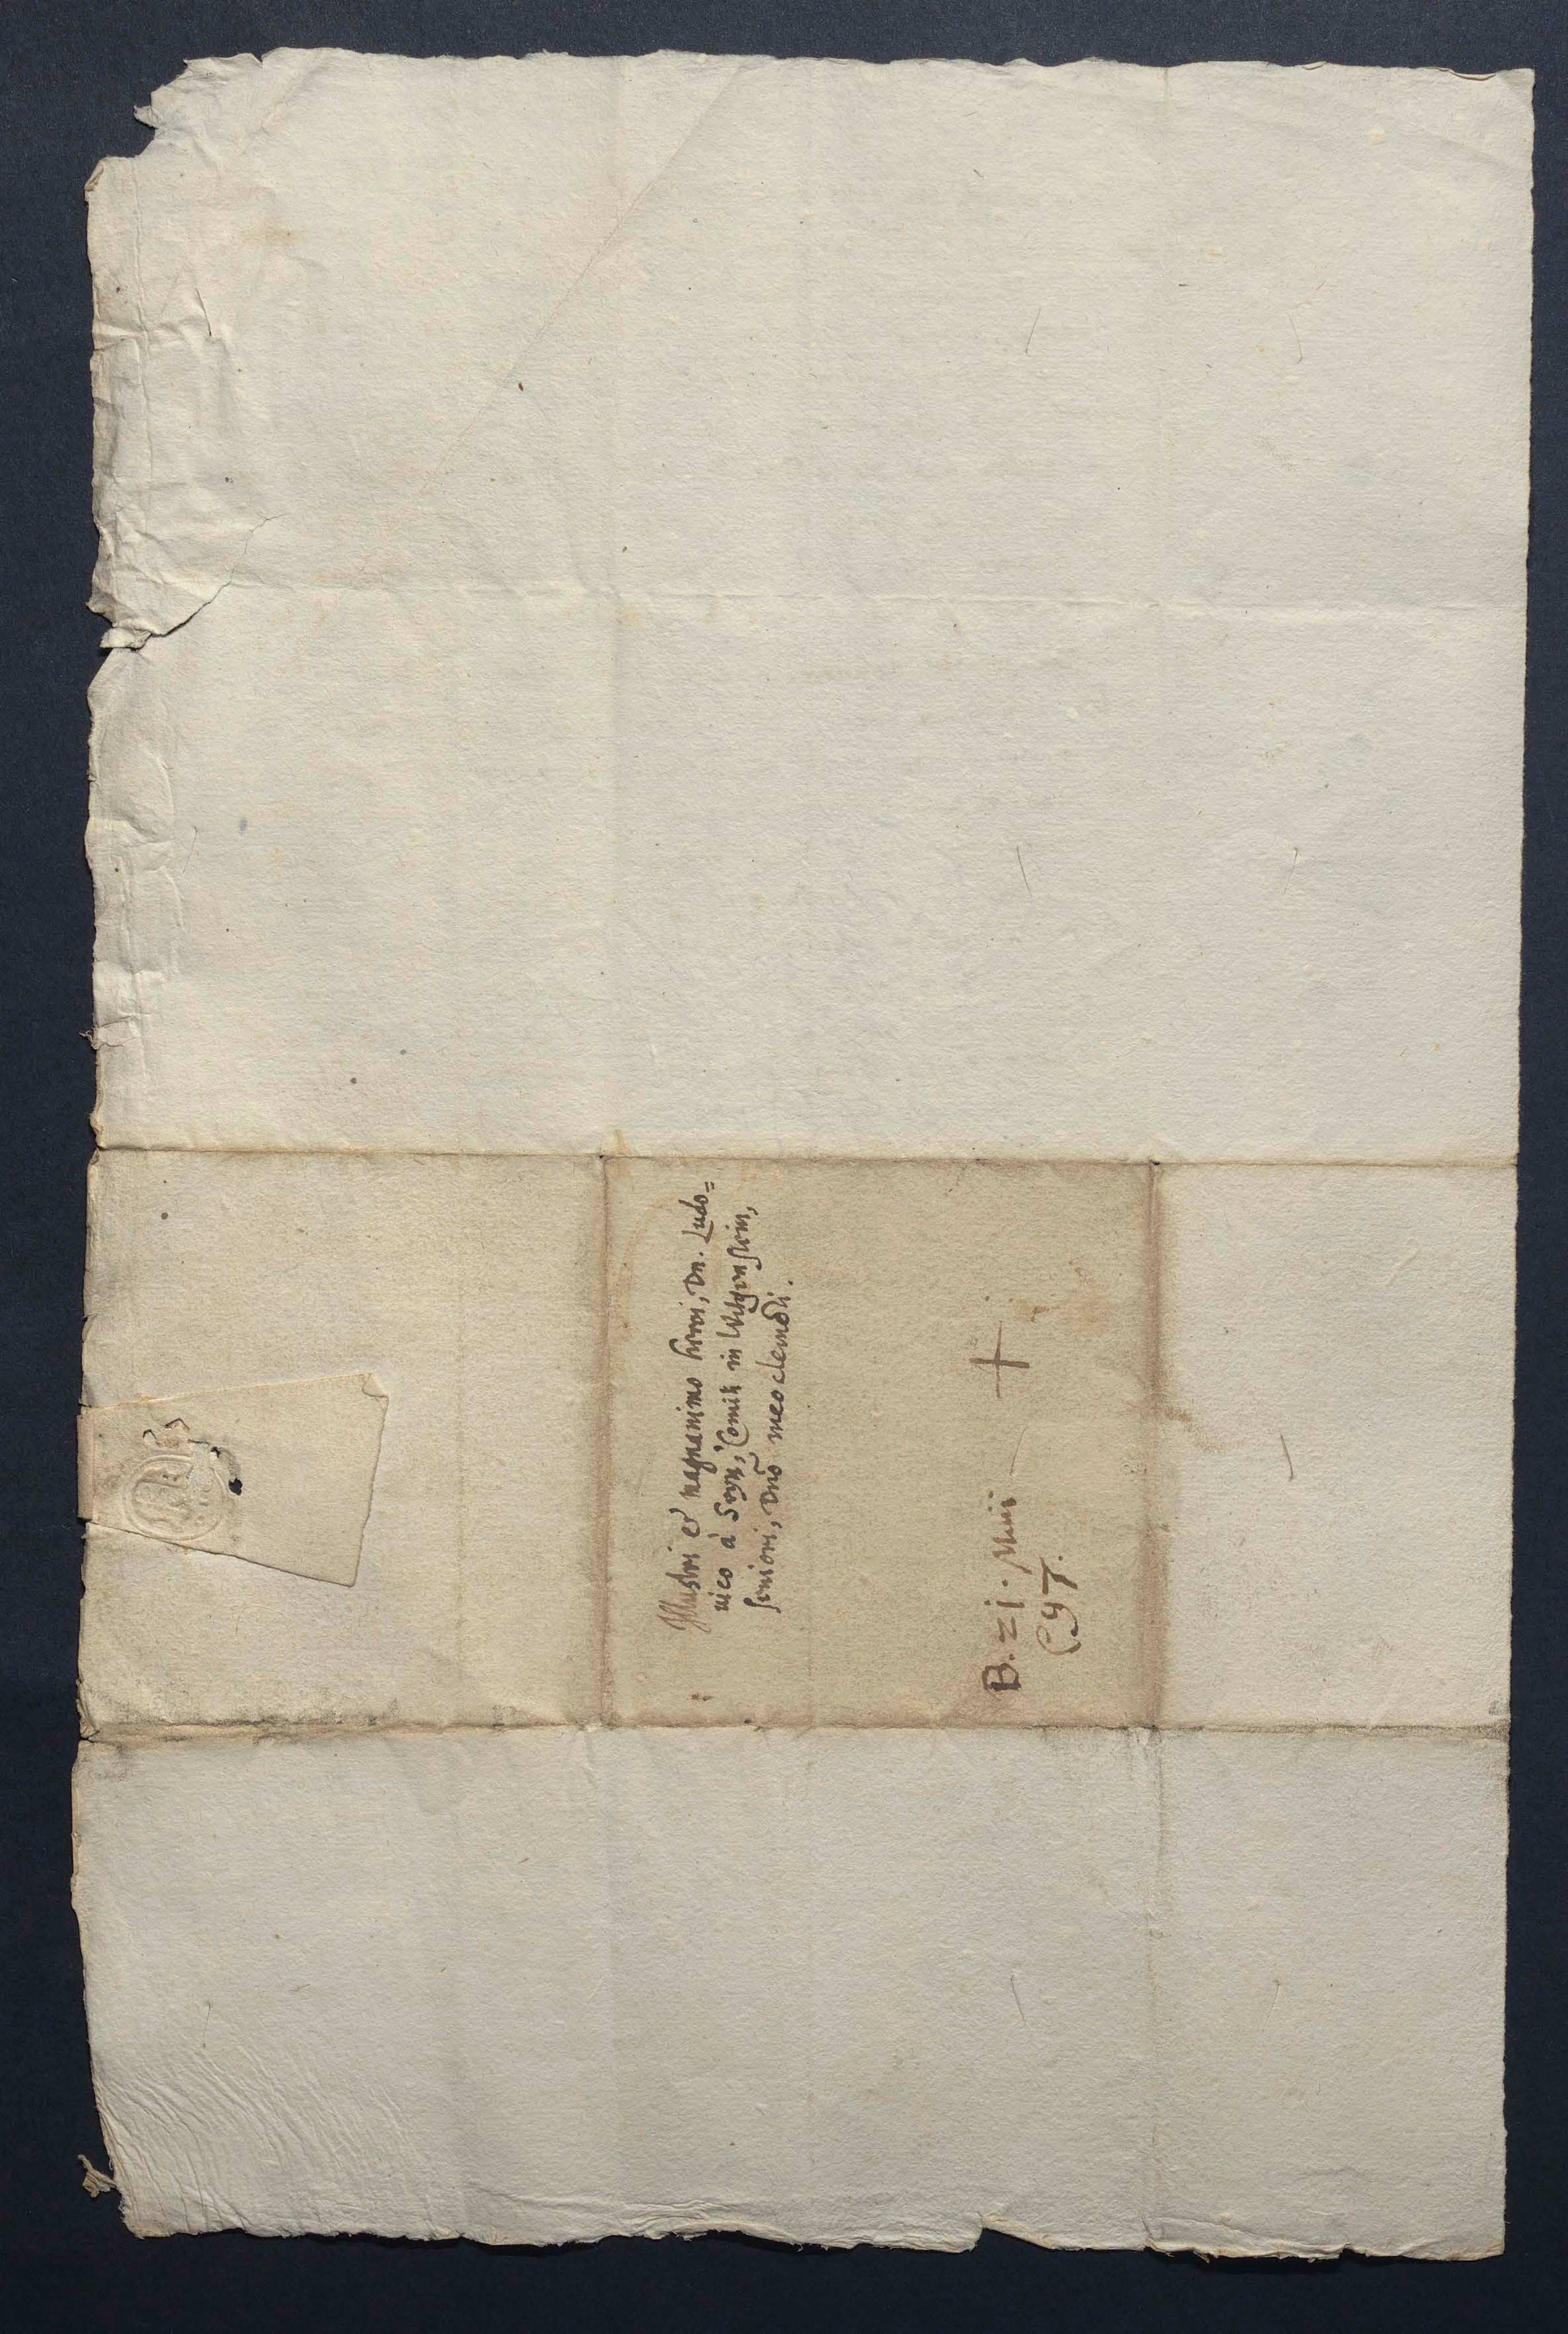 Illustri et magnanimo heroi, Dn. Ludo=
uico à Seyn, Comiti in Witgenstein,
seniori, Dn̄o meo clementi.
B. zi. Maii
(97.